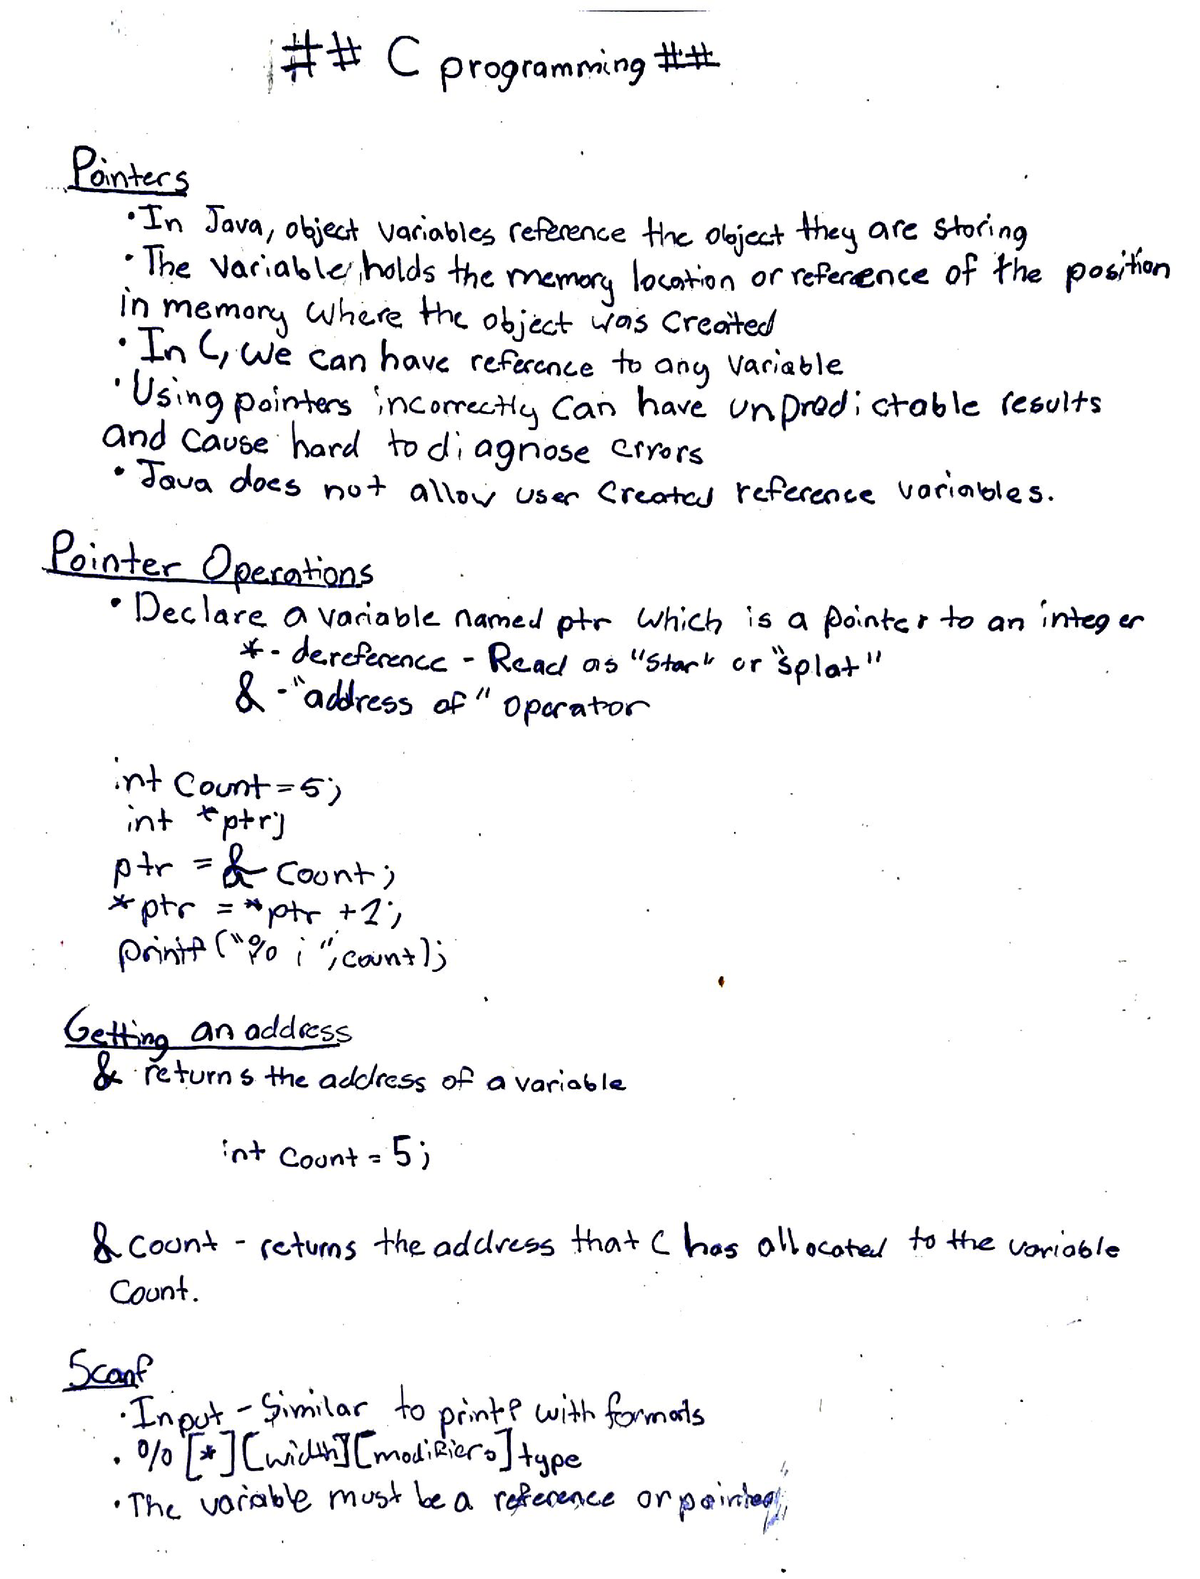 ## C programming ##
Pointers
• In Java, object variables reference the object they are storing
• The variable, holds the memory location or reference of the position
in memory where the object was created
• In C, we can have reference to any variable
• Using pointers incorrectly can have unpredictable results
and cause hard to diagnose errors
• Java does not allow user created reference variables.
Pointer Operations
• Declare a variable named ptr which is a pointer to an integer
* - dereference - Read as "star" or "splat"
& - "address of" operator
int count = 5;
int *ptr;
ptr = & count;
*ptr = *ptr + 1;
printf ("% i", count);
Getting an address
& returns the address of a variable
int count = 5;
& count - returns the address that C has allocated to the variable
count.
Scanf
• Input - Similar to printf with formats
• % [*] [width] [modifiers] type
• The variable must be a reference or pointer